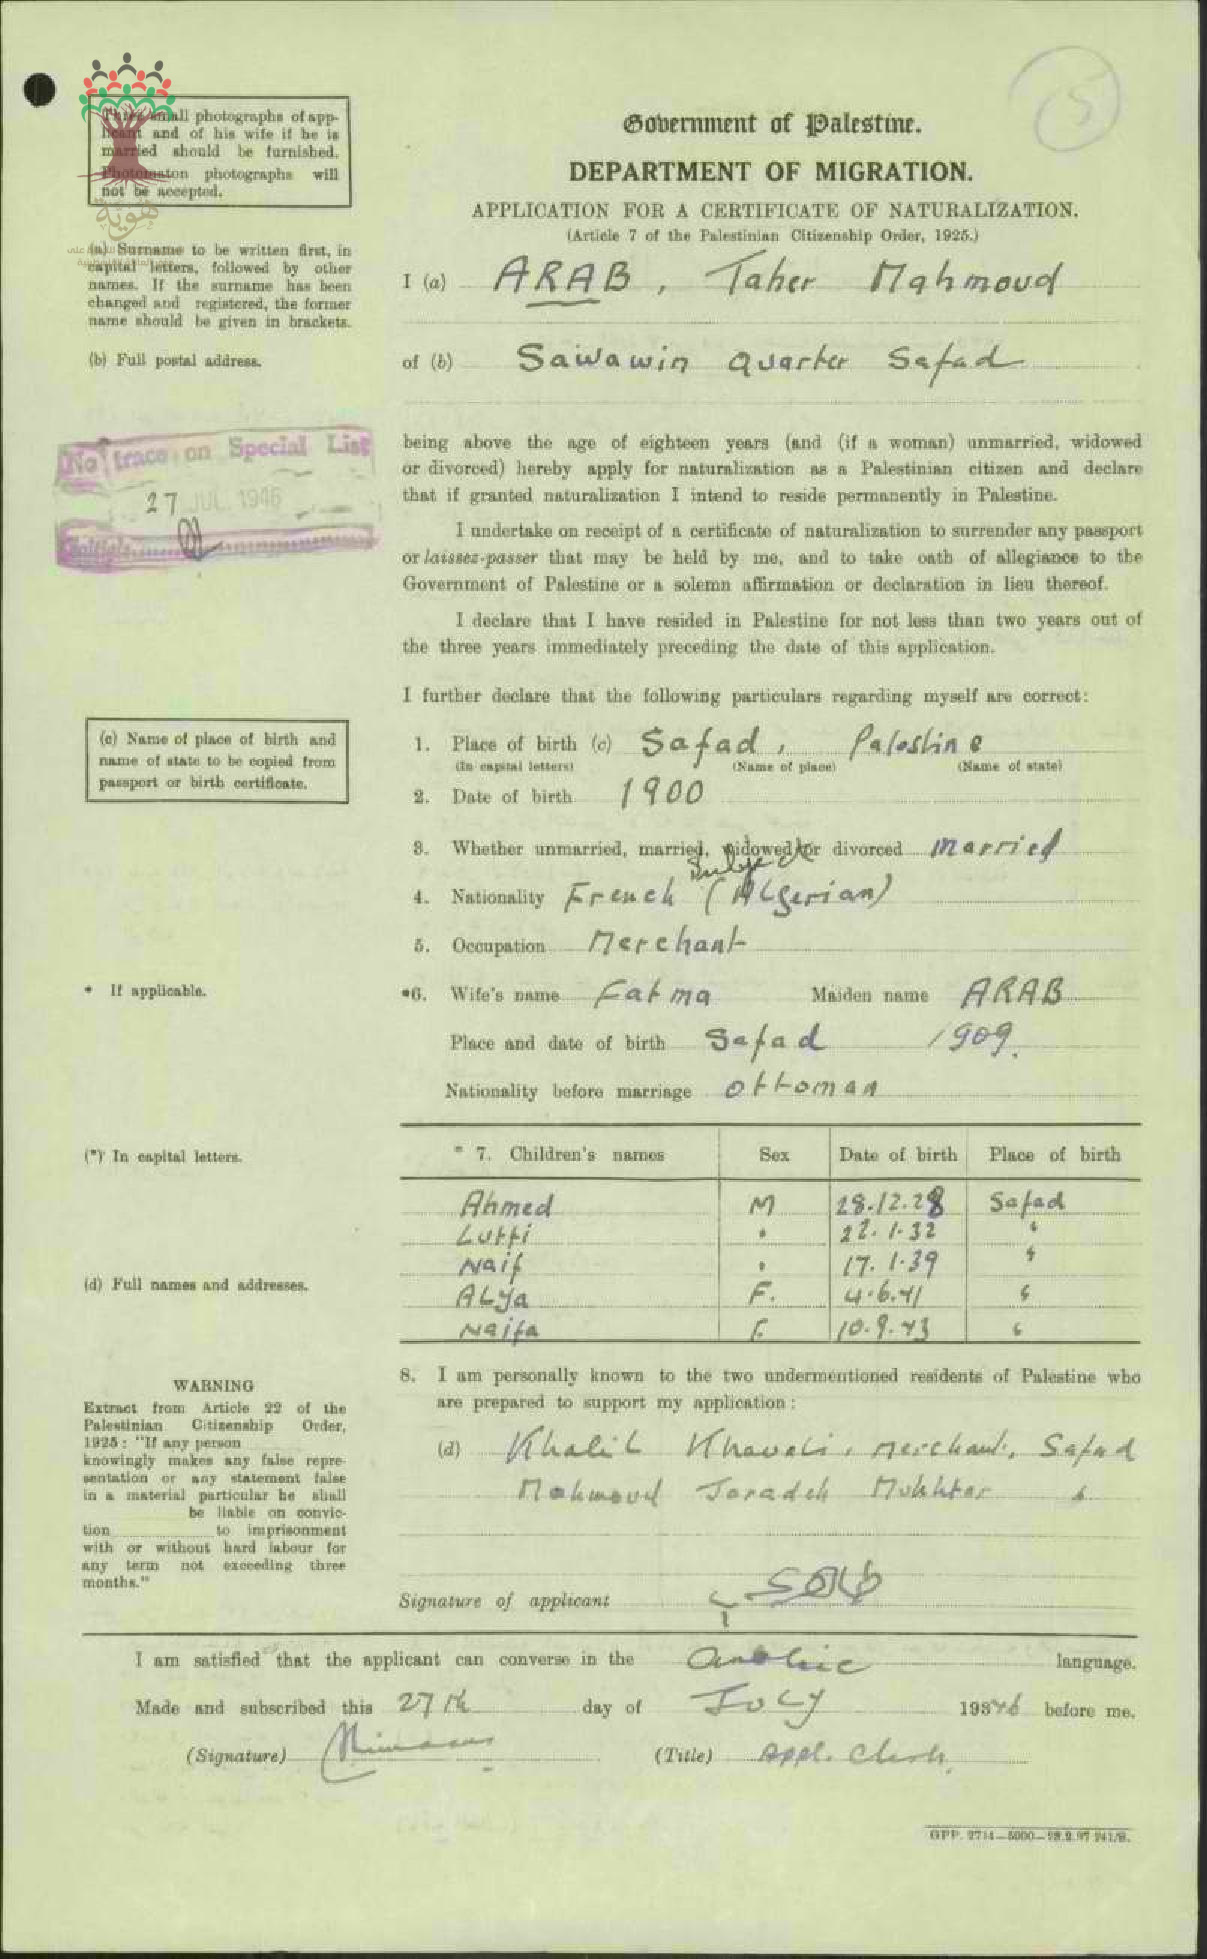 5
Three small photographs of app-
licant and of his wife if he is
married should be furnished.
Photomaton photographs will
not be accepted.
هوية
Government of Palestine.
DEPARTMENT OF MIGRATION.
APPLICATION FOR A CERTIFICATE OF NATURALIZATION.
(Article 7 of the Palestinian Citizenship Order, 1925.)
(a) Surname to be written first, in
capital letters, followed by other
names. If the surname has been
changed and registered, the former
name should be given in brackets.
I (a) ARAB, Taher Mahmoud
(b) Full postal address.
of (b) Sawawin Quarter Safad
No trace on Special List
27 JUL 1946
Initials
being above the age of eighteen years (and (if a woman) unmarried, widowed
or divorced) hereby apply for naturalization as a Palestinian citizen and declare
that if granted naturalization I intend to reside permanently in Palestine.
I undertake on receipt of a certificate of naturalization to surrender any passport
or laissez-passer that may be held by me, and to take oath of allegiance to the
Government of Palestine or a solemn affirmation or declaration in lieu thereof.
I declare that I have resided in Palestine for not less than two years out of
the three years immediately preceding the date of this application.
I further declare that the following particulars regarding myself are correct:
(c) Name of place of birth and
name of state to be copied from
passport or birth certificate.
1. Place of birth (c) Safad, Palestine
(In capital letters) (Name of place) (Name of state)
2. Date of birth 1900
3. Whether unmarried, married, widowed or divorced married
Subject
4. Nationality French (Algerian)
5. Occupation Merchant
* If applicable.
*6. Wife's name Fatma Maiden name ARAB
Place and date of birth Safad 1909.
Nationality before marriage Ottoman
(*) In capital letters.
* 7. Children's names Sex Date of birth Place of birth
Ahmed M 28.12.28 Safad
Lutfi " 22.1.32 "
Naif " 17.1.39 "
ALya F. 4.6.41 "
Naifa F. 10.9.43 "
(d) Full names and addresses.
8. I am personally known to the two undermentioned residents of Palestine who
are prepared to support my application:
(d) Khalil Khavali, merchant, Safad
Mahmoud Jaradeh Mukhtar "
WARNING
Extract from Article 22 of the
Palestinian Citizenship Order,
1925: "If any person
knowingly makes any false repre-
sentation or any statement false
in a material particular he shall
be liable on convic-
tion to imprisonment
with or without hard labour for
any term not exceeding three
months."
Signature of applicant
I am satisfied that the applicant can converse in the Arabic language.
Made and subscribed this 27th day of July 19346 before me.
(Signature) (Title) Appl. Clerk.
GPP. 2714—5000—22.2.37 241/S.